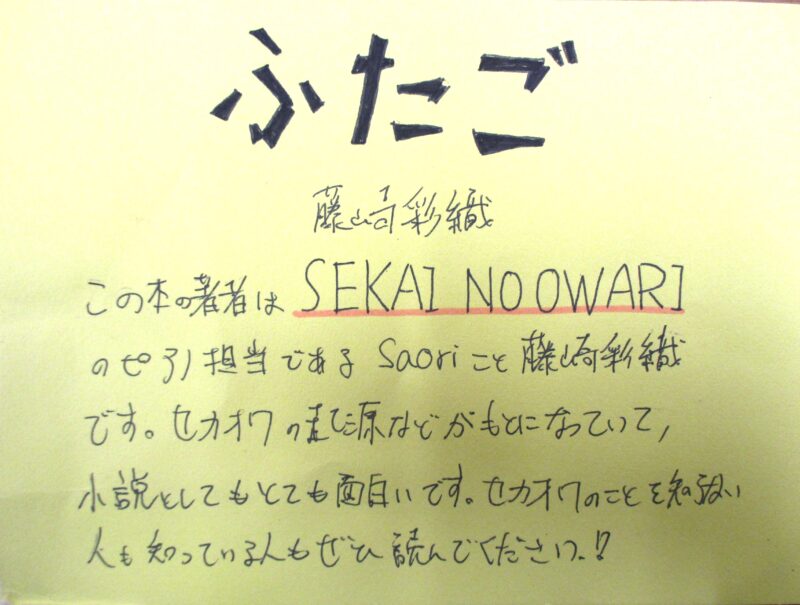 ふたご
藤崎彩織
この本の著者は SEKAI NO OWARI
のピアノ担当である Saoriこと藤崎彩織
です。セカオワの起源などがもとになっていて,
小説としてもとても面白いです。セカオワのことを知らない
人も知っている人もぜひ読んでください!